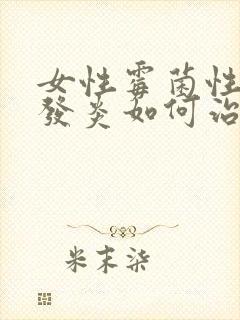 女性霉菌性
發炎如何治
米末染